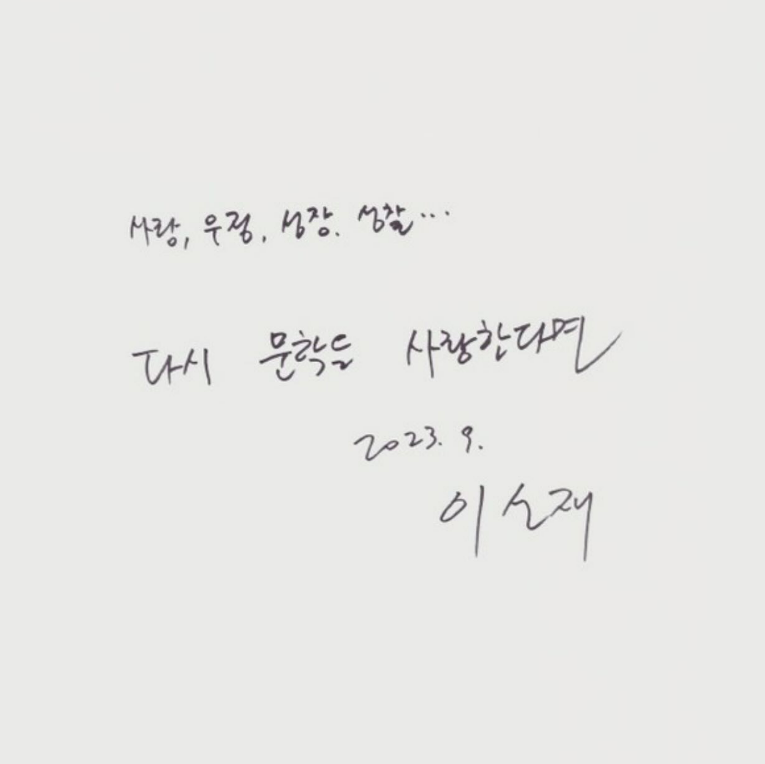 사랑, 우정, 성장. 성찰...
다시 문학을 사랑한다면
2023. 9.
이선재